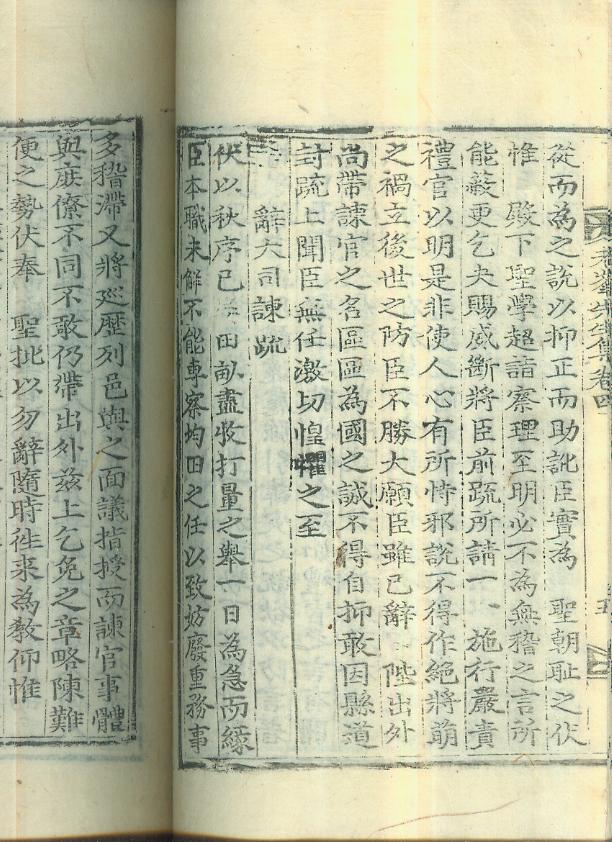 先生集卷四
從而為之說以抑正而助訛臣實為 聖朝耻之伏
惟 殿下聖學超詣察理至明必不為無稽之言所
能蔽更乞夬賜威斷將臣前疏所請一〻施行嚴責
禮官以明是非使人心有所恃邪說不得作絶將萌
之禍立後世之防臣不勝大願臣雖已辭 陛出外
尚帶諫官之名區區為國之誠不得自抑敢因縣道
封疏上聞臣無任激切惶懼之至
辭大司諫疏
伏以秋序已 田畝盡收打量之舉一日為急而緣
臣本職未解不能專察均田之任以致妨廢重務事
多稽滯又將廵歷列邑與之面議指授而諫官事體
與庶僚不同不敢仍帶出外玆上乞免之章略陳難
便之勢伏奉 聖批以勿辭隨時徃來為敎仰惟